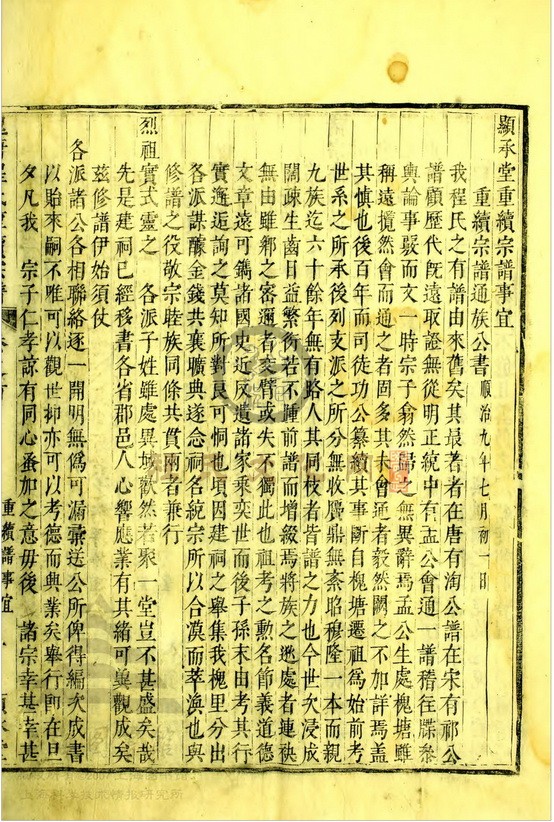 顯承堂重續宗譜事宜
重續宗譜通族公書 順治九年七月初一日
我程氏之有譜由來舊矣其最著者在唐有淘公譜在宋有祁公
譜顧歷代旣遠取證無從明正統中有孟公會通一譜稽往牒叅
輿論事覈而文一時宗子翕然歸之無異辭焉孟公生處槐塘雖
稱遠攬然會而通之者固多其未會通者毅然闕之不加詳焉蓋
其愼也後百年而司徒功公纂續其事斷自槐塘遷祖爲始前考
世系之所承後列支派之所分無收贋鼎無紊昭穆隆一本而親
九族迄六十餘年無有路人其同枝者皆譜之力也今世次浸成
闊疎生齒日益繁衍若不踵前譜而增綴焉將族之遡處者連袂
無由雖鄉之密邇者交臂或失不獨此也祖考之勳名節義道德
文章遠可鐫諸國史近反遺諸家乘奕世而後子孫末由考其行
實邂逅詢之莫知所對良可憫也頃因建祠之舉集我槐里分出
各派謀釀金錢共襄曠典遂念祠名統宗所以合漠而萃渙也與
修譜之役敬宗睦族同條共貫兩者兼行
烈祖實式靈之 各派子姓雖處異域歡然若聚一堂豈不甚盛矣哉
先是建祠已經移書各省郡邑人心響應業有其緒可與觀成矣
茲修譜伊始須仗
各派諸公各相聯絡逐一開明無僞可漏彙送公所俾得編矣成書
以貽來嗣不唯可以觀世抑亦可以考德而興業矣舉行卽在旦
夕凡我 宗子仁孝諒有同心蚤加之意毋後 諸宗幸甚幸甚
重續譜事宜